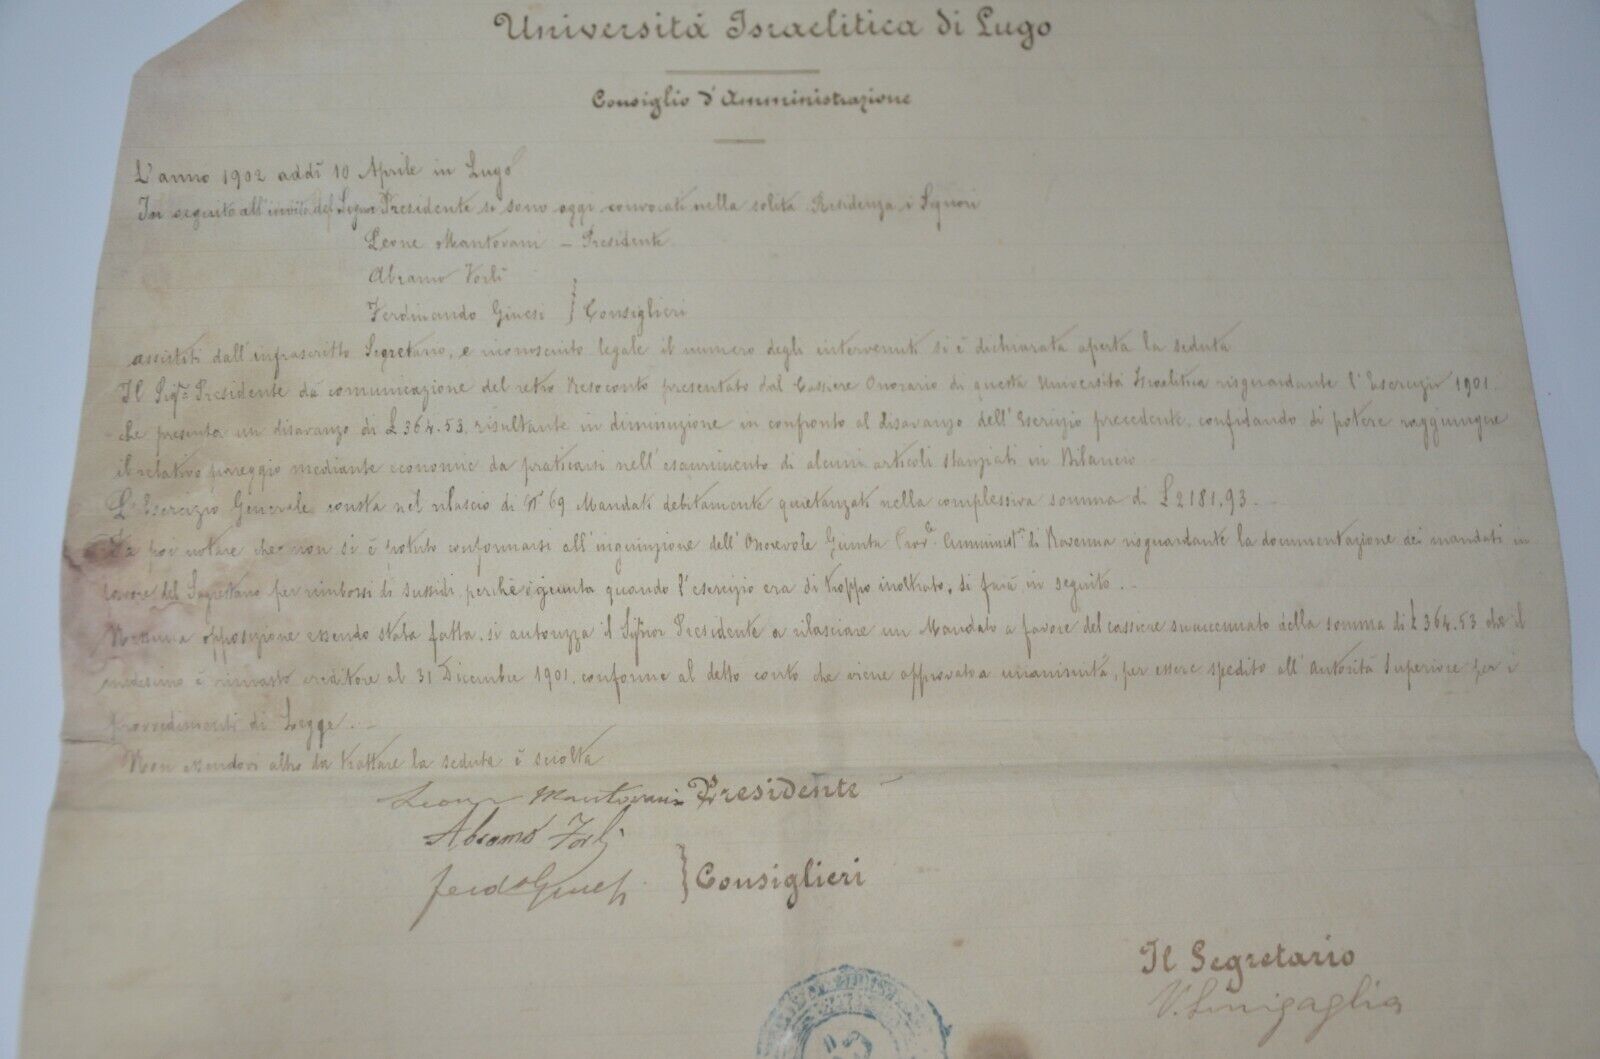 Università Israelitica di Lugo
Consiglio d'Amministrazione
L'anno 1902 addì 10 Aprile in Lugo
In seguito all'invito del Signor Presidente si sono oggi convocati nella solita Residenza i Signori
Leone Mantovani – Presidente
Abramo Forlì
Ferdinando Ginesi } Consiglieri
assistiti dall'infrascritto Segretario, e riconosciuto legale il numero degli intervenuti si è dichiarata aperta la seduta
Il Sigr. Presidente dà comunicazione del retro Resoconto presentato dal Cassiere Onorario di questa Università Israelitica risguardante l'Esercizio 1901.
che presenta un disavanzo di £ 364.53. risultante in diminuzione in confronto al disavanzo dell'Esercizio precedente, confidando di potere raggiungere
il relativo pareggio mediante economie da praticarsi nell'esaurimento di alcuni articoli stanziati in Bilancio
L'Esercizio Generale consta nel rilascio di N° 69 Mandati debitamente quietanzati nella complessiva somma di £ 2181,93. –
Fa poi notare che non si è potuto conformarsi all'ingiunzione dell'Onorevole Giunta Prov.le Amminist.va di Ravenna risguardante la documentazione dei mandati in
favore del Segretario per rimborsi di sussidi, perchè giunta quando l'esercizio era di troppo inoltrato, si farà in seguito. –
Nessuna opposizione essendo stata fatta, si autorizza il Signor Presidente a rilasciare un Mandato a favore del cassiere suaccennato della somma di £ 364.53 che il
medesimo è rimasto creditore al 31 Dicembre 1901. conforme al detto conto che viene approvato a unanimità, per essere spedito all'Autorità Superiore per i
provvedimenti di Legge. –
Non essendovi altro da trattare la seduta è sciolta
Leone Mantovani Presidente
Abramo Forlì
Ferdo Ginesi } Consiglieri
Il Segretario
V. Senigaglia